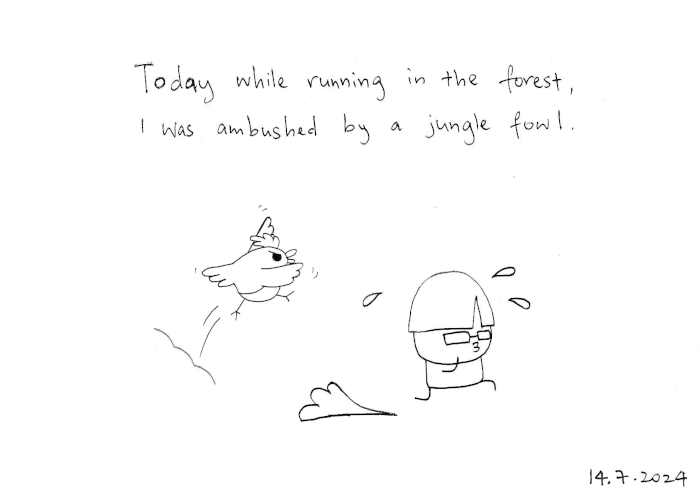 Today while running in the forest,
I was ambushed by a jungle fowl.
14.7.2024